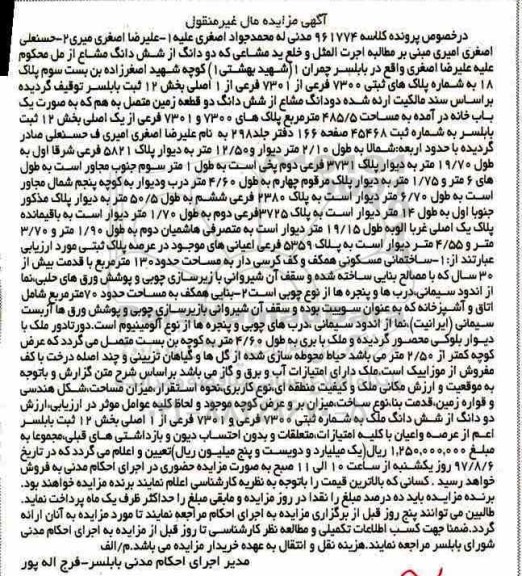 آگهی مزایده مال غیرمنقول
درخصوص پرونده کلاسه ۹۶۱۷۷۴ مدنی له محمدجواد اصغری علیه۱-علیرضا اصغری میری۲-حسنعلی
اصغری امیری مبنی بر مطالبه اجرت المثل و خلع ید مشاعی که دو دانگ از شش دانگ مشاع از مل محکوم
علیه علیرضا اصغری واقع در بابلسر چمران ۱(شهید بهشتی۱) کوچه شهید اصغرزاده بن بست سوم پلاک
۱۸ به شماره پلاک های ثبتی ۷۳۰۰ فرعی از ۷۳۰۱ فرعی از ۱ اصلی بخش ۱۲ ثبت بابلسر توقیف گردیده
براساس سند مالکیت ارئه شده دودانگ مشاع از شش دانگ دو قطعه زمین متصل به هم که به صورت یک
باب خانه در آمده به مساحت ۴۸۵/۵ مترمربع پلاک های ۷۳۰۰ و ۷۳۰۱ فرعی از یک اصلی بخش ۱۲ ثبت
بابلسر به شماره ثبت ۴۵۴۶۸ صفحه ۱۶۶ دفتر جلد۲۹۸ به نام علیرضا اصغری امیری ف حسنعلی صادر
گردیده با حدود اربعه:شمالا به طول ۲/۱۰ متر دیوار و۱۲/۵۰ متر به دیوار پلاک ۵۸۲۱ فرعی شرقا اول به
طول ۱۹/۷۰ متر به دیوار پلاک ۳۷۳۱ فرعی دوم پخی است به طول ۱ متر سوم جنوب مجاور است به طول
های ۶ متر و ۱/۷۵ متر به دیوار پلاک مرقوم چهارم به طول ۴/۶۰ متر درب ودیوار به کوچه پنجم شمال مجاور
است به طول ۶/۷۰ متر به پلاک ۲۳۸۰ فرعی ششم به طول ۵۰/۵ متر به دیوار پلاک مذکور
جنوبا اول به طول ۱۴ متر دیوار است به پلاک ۳۷۲۵فرعی دوم به طول ۱/۷۰ متر دیوار است به باقیمانده
پلاک یک اصلی غربا الوبه طول ۱۹/۱۵ متر دیوار است به متصرفی هاشمیان دوم به طول ۱/۹۰ متر و ۳/۷۰
متر و ۴/۵۵ متر دیوار است به پلاک ۵۳۵۹ فرعی اعیانی های موجود در عرصه پلاک ثبتی مورد ارزیابی
عبارتند از:۱-ساختمانی مسکونی همکف و کف کرسی دار به مساحت حدود۱۳۰ مترمربع با قدمت بیش از
۳۰ سال که با مصالح بنایی ساخته شده و سقف آن شیروانی با زیرسازی چوبی و پوشش ورق های حلبی،نما
از اندود سیمانی،درب ها و پنجره ها از نوع چوبی است۲-بنایی همکف به مساحت حدود ۷۰مترمربع شامل
اتاق و آشپزخانه که به عنوان سوییت بوده و سقف آن شیروانی بازیرسازی چوبی و پوشش ورق ها آزبست
سیمانی (ایرانیت)،نما از اندود سیمانی ،درب های چوبی و پنجره ها از نوع آلومینیوم است.دورتادور ملک با
دیوار بلوکی محصور گردیده و ملک با بری به طول ۴/۶۰ متر به کوچه بن بست متصل می گردد که عرض
کوچه کمتر از ۲/۵۰ متر می باشد حیاط محوطه سازی شده از گل ها و گیاهان تزیینی و چند اصله درخت با کف
مفروش از موزاییک است.ملک دارای امتیازات آب و برق و گاز می باشد براساس شرح متن گزارش و باتوجه
به موقعیت و ارزش مکانی ملک و کیفیت منطقه،نوع کاربری،نحوه استقرار،میزان مساحت،شکل هندسی
و قواره زمین،قدمت بنا،نوع ساخت،میزان بر و عرض کوچه موجود و لحاظ کلیه عوامل موثر در ارزیابی،ارزش
دو دانگ از شش دانگ ملک به شماره ثبتی ۷۳۰۰ فرعی و ۷۳۰۱ فرعی از ۱ اصلی بخش ۱۲ ثبت بابلسر
اعم از عرصه واعیان با کلیه امتیازات،متعلقات و بدون احتساب دیون و بازداشتی های قبلی،مجموعا به
مبلغ ۱,۲۵۰,۰۰۰,۰۰۰ ریال(یک میلیارد و دویست و پنج میلیون ریال)تعیین و اعلام می گردد که در تاریخ
۹۷/۸/۶ روز یکشنبه از ساعت ۱۰ الی ۱۱ صبح به صورت مزایده حضوری در اجرای احکام مدنی به فروش
خواهد رسید . کسانی که بالاترین قیمت را باتوجه به نظریه کارشناسی اعلام نمایند برنده مزایده خواهند بود.
برنده مزایده باید ده درصد مبلغ را نقدا در روز مزایده و مابقی مبلغ را حداکثر ظرف یک ماه پرداخت نماید.
طالبین می توانند پنج روز قبل از برگزاری مزایده به اجرای احکام مراجعه نمایند تا مورد مزایده به آنان ارائه
گردد.ضمنا جهت کسب اطلاعات تکمیلی و مطالعه نظر کارشناسی تا روز قبل از مزایده به اجرای احکام مدنی
شورای بابلسر مراجعه نمایند.هزینه نقل و انتقال به عهده خریدار مزایده می باشد.م/الف
مدیر اجرای احکام مدنی بابلسر-فرج اله پور